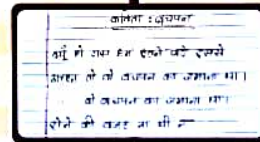 कविता : बचपन
क्यों हो गए हम इतने बड़े इससे
अच्छा तो वो बचपन का जमाना था।
वो बचपन का जमाना था।
रोने की वजह ना थी न